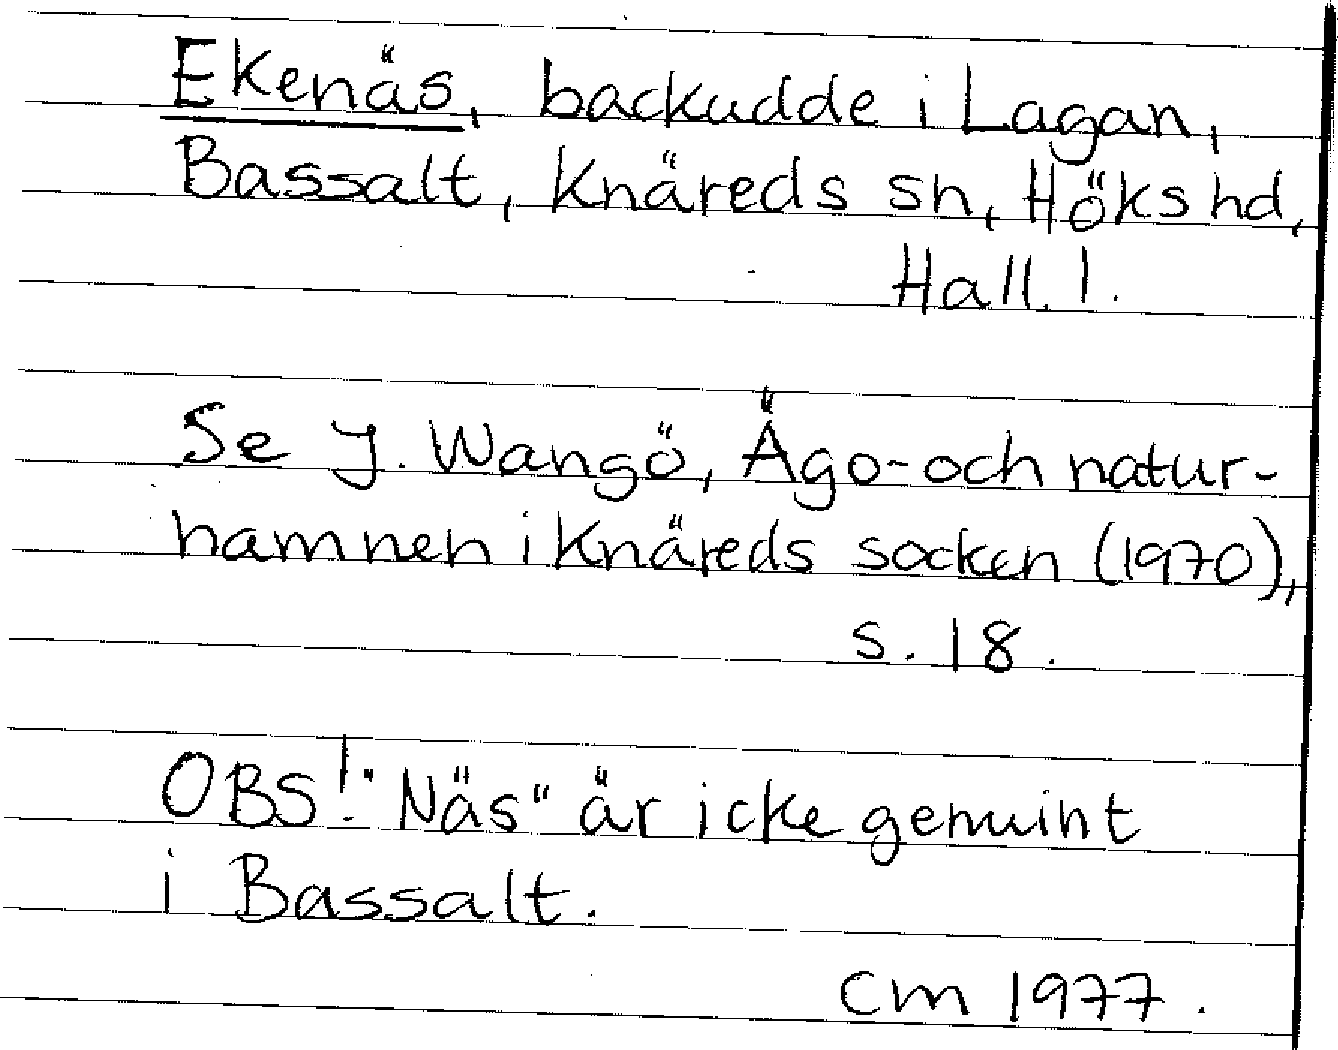 Ekenäs, backudde i Lagan,
Bassalt, Knäreds sn, Höks hd,
Hall. l.
Se J. Wangö, Ägo- och natur-
namnen i Knäreds socken (1970),
s. 18.
OBS! "Näs" är icke genuint
i Bassalt.
CM 1977.